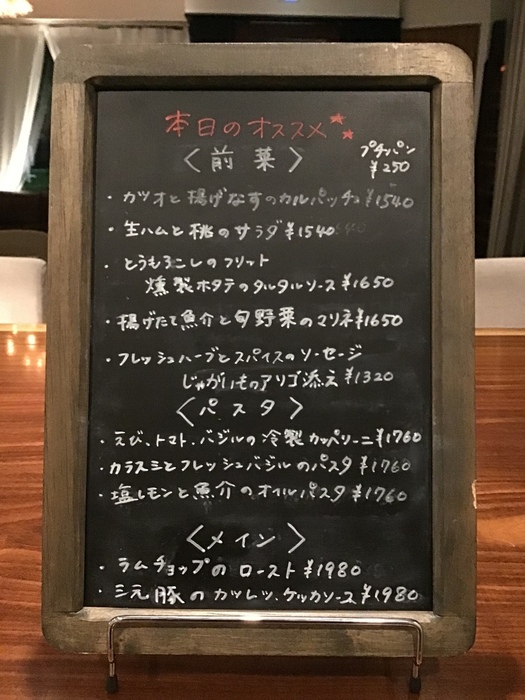 本日のオススメ
〈前菜〉
プチパン
¥250
・カツオと揚げなすのカルパッチョ ¥1540
・生ハムと桃のサラダ ¥1540
・とうもろこしのフリット
燻製ホタテのタルタルソース ¥1650
・揚げたて魚介と旬野菜のマリネ ¥1650
・フレッシュハーブとスパイスのソーセージ
じゃがいものアリゴ添え ¥1320
〈パスタ〉
・えび、トマト、バジルの冷製カッペリーニ ¥1760
・カラスミとフレッシュバジルのパスタ ¥1760
・塩レモンと魚介のオイルパスタ ¥1760
〈メイン〉
・ラムチョップのロースト ¥1980
・三元豚のカツレツ、ケッカソース ¥1980